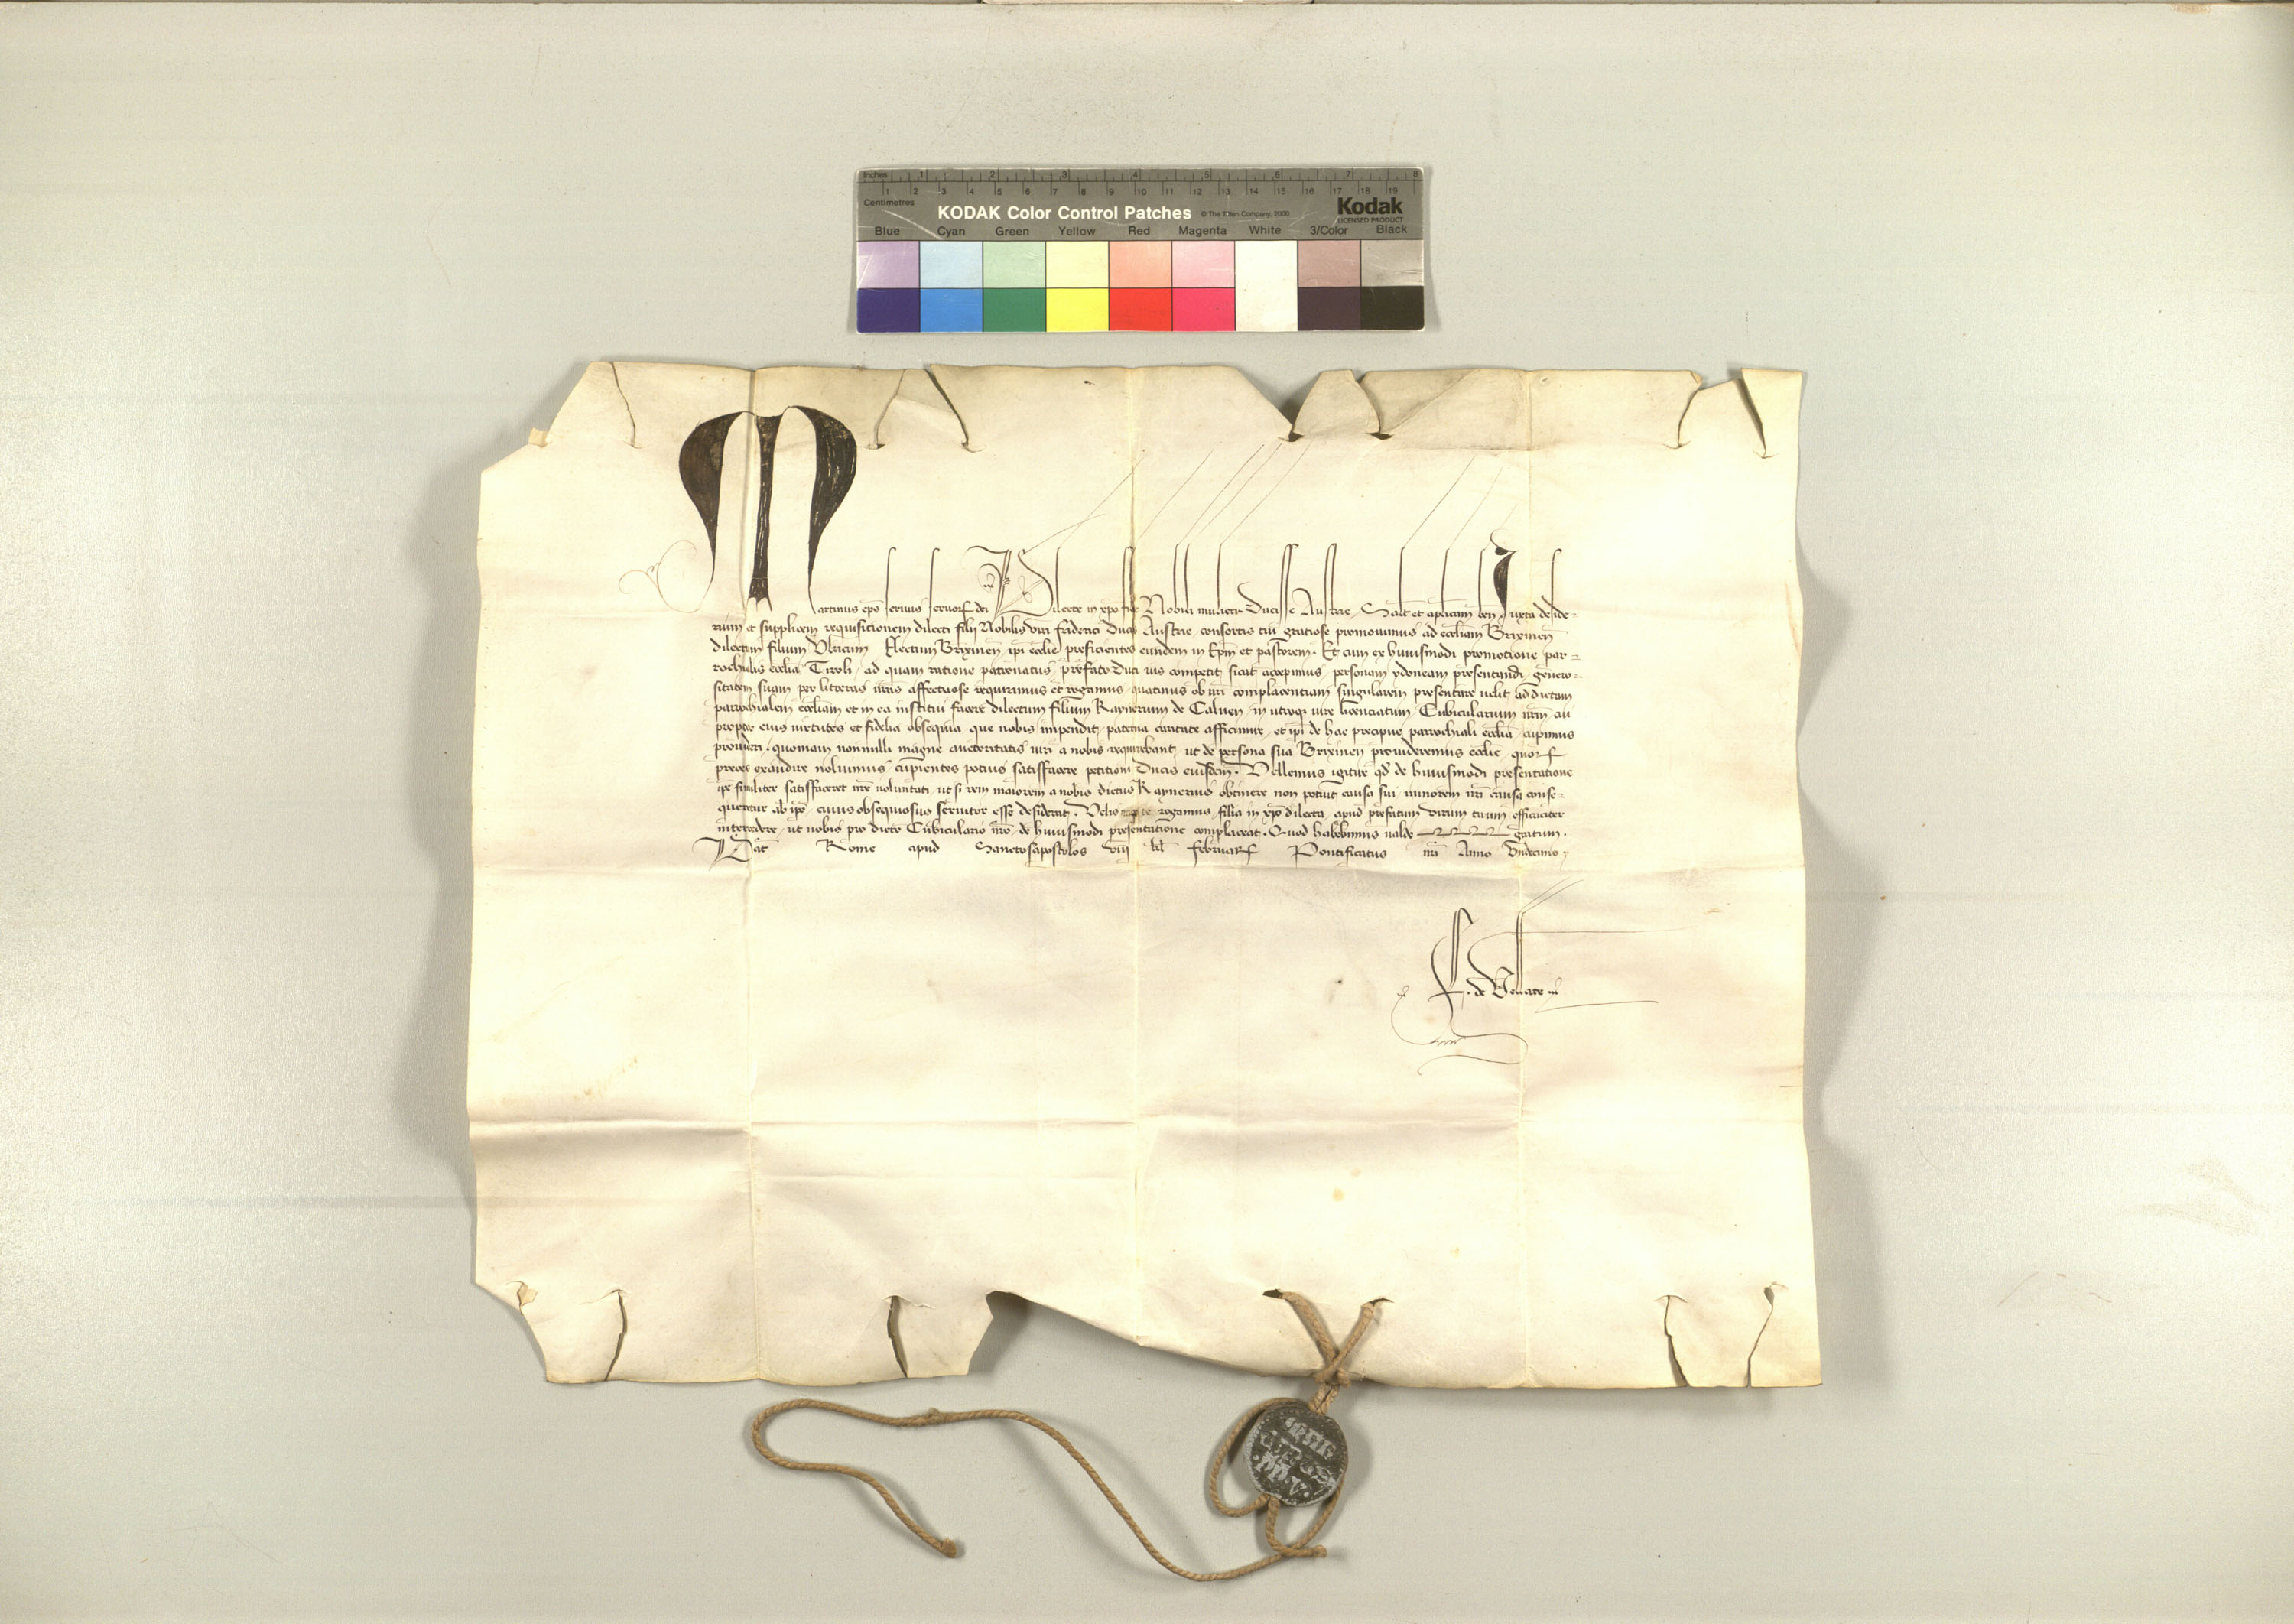 Inches 1 2 3 4 5 6 7 8
1 2 3 4 5 6 7 8 9 10 11 12 13 14 15 16 17 18 19
Centimetres
KODAK Color Control Patches © The Tiffen Company, 2000 Kodak
LICENSED PRODUCT
Blue Cyan Green Yellow Red Magenta White 3/Color Black
Martinus ep̄s servus servoꝝ dei Dilecte in xp̄o filie Nobili mulieri Ducisse Austrie Salt̄ et ap̄licam ben̄ Iuxta deside-
rium et supplicem requisitionem dilecti filii Nobilis viri friderici Ducis Austrie consortis tui gratiose promouimus ad eccl̄iam Brixinen̄
dilectum filium Vlricum Electum Brixinen̄ ip̄i eccl̄ie preficientes eundem in Ep̄m et pastorem. Et cum ex huiusmodi promotione par-
rochialis eccl̄ia Tiroli ad quam ratione patronatus prefato Duci ius competit sicut accepimus personam ydoneam presentandi genero-
sitatem suam per litteras nr̄as affectuose requirimus et rogamus quatinus ob nr̄i complacentiam singularem presentare uelit ad dictam
parrochialem eccl̄iam et in ea institui facere dilectum filium Raynerium de Caluen in utroqꝫ iure licenciatum Cubicularium nr̄m cui
propter eius uirtutes et fidelia obsequia que nobis impendit paterna caritate afficimur et ip̄i de hac precipue parrochiali eccl̄ia cupimus
prouideri. quoniam nonnulli magne auctoritatis uiri a nobis requirebant ut de persona sua Brixinen̄ prouideremus eccl̄ie quoꝝ
preces exaudire noluimus cupientes potius satisfacere petitioni Ducis eiusdem. Vellemus igitur qd̄ de huiusmodi presentatione
ip̄e similiter satisfaceret nr̄e voluntati ut si rem maiorem a nobis dictus Raynerius obtinere non potuit causa sui minorem nr̄i causa conse-
queretur ab ip̄o cuius obsequiosus seruitor esse desiderat. Velis te rogamus filia in xp̄o dilecta apud prefatum virum tuum efficaciter
intercedere ut nobis pro dicto Cubiculario nr̄o de huiusmodi presentatione complaceat. Quod habebimus ualde gratum.
Dat̄ Rome apud Sanctosapostolos viij kl̄ februaꝝ Pontificatus nr̄i Anno Vndecimo
de
MAR
TINVS
·PP·V·